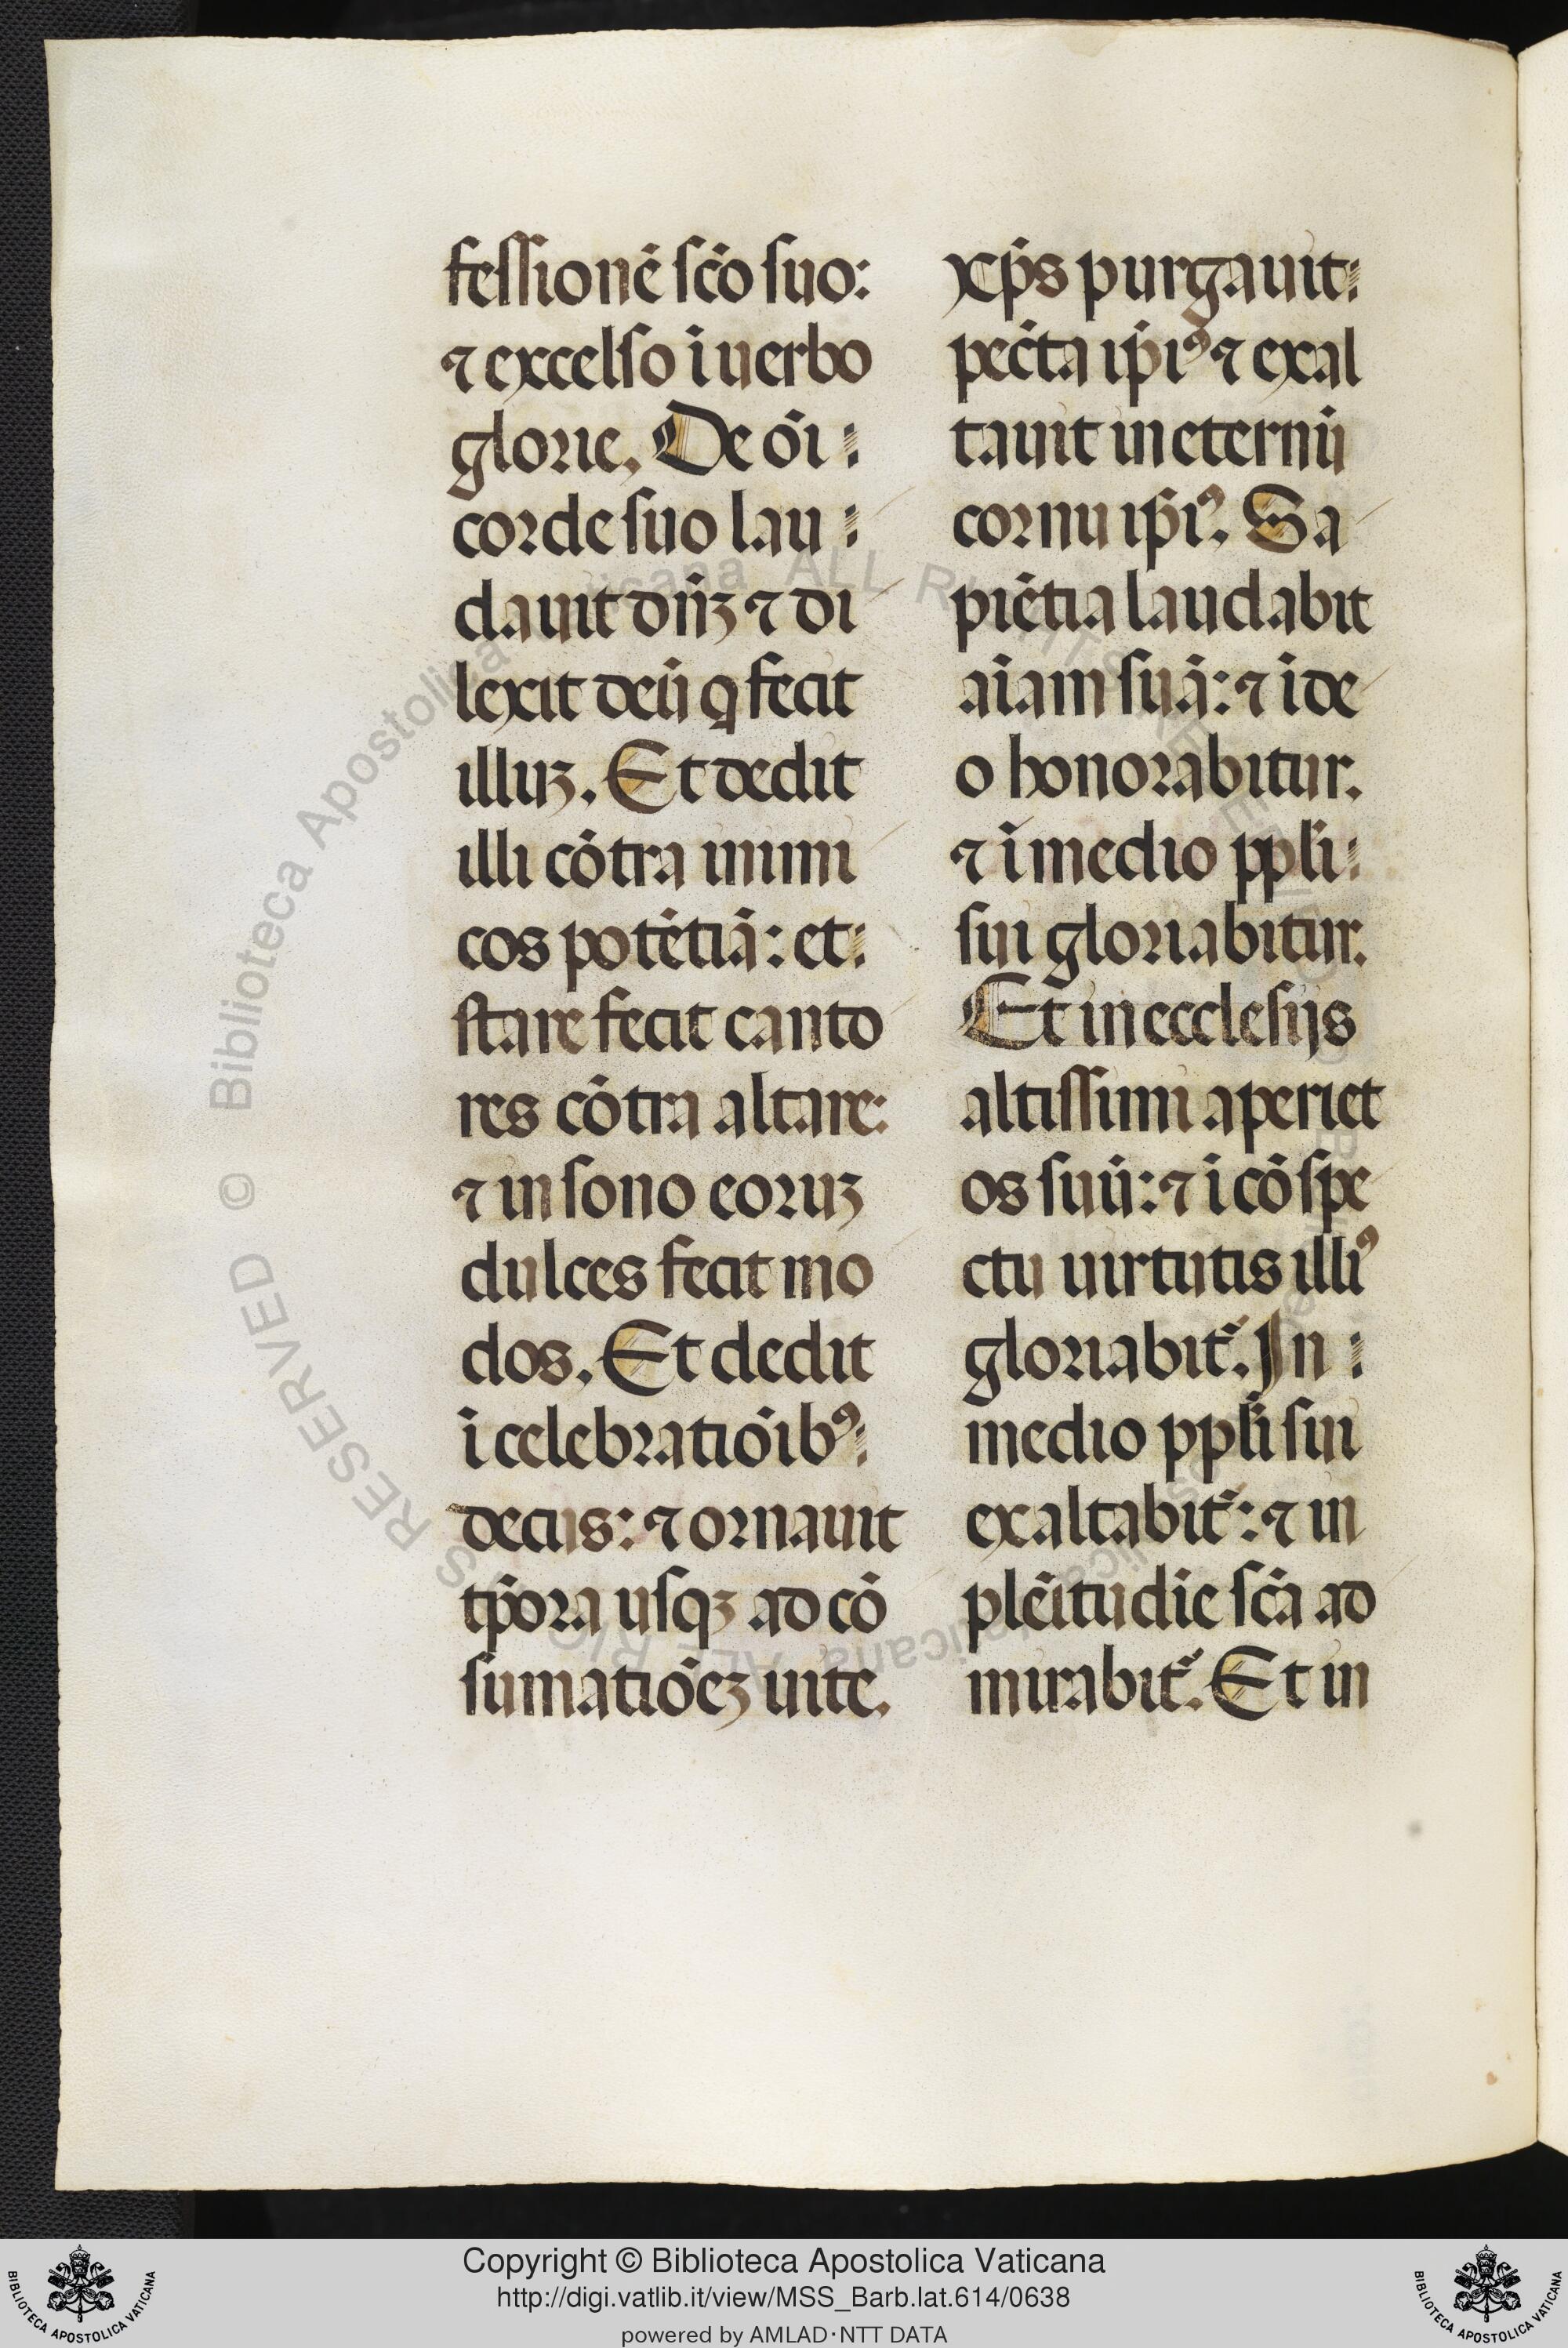 fessionē sc̄o suo:
⁊ excelso ī uerbo
glorie. De oī
corde suo lau
dauit dn̄ꝫ ⁊ di
lexit deū q fecit
illuꝫ. Et dedit
illi cōtra inimi
cos potētiā: et
stare fecit canto
res cōtra altare:
⁊ in sono eoruꝫ
dulces fecit mo
dos. Et dedit
ī celebratiōibꝰ
decus: ⁊ ornauit
tp̄ora usqꝫ ad cō
sumatiōeꝫ uite.
xp̄s purgauit
pec̄ta ip̄iꝰ ⁊ exal
tauit in eternū
cornu ip̄iꝰ. Sa
piētia laudabit
aīam suā: ⁊ ī de
o honorabitur.
⁊ ī medio ppl̄i
sui gloriabitur.
Et in ecclesijs
altissimi aperiet
os suū: ⁊ ī cōspe
ctu uirtutis illiꝰ
gloriabit᷑. In
medio ppl̄i sui
exaltabit᷑: ⁊ in
plēitudie sc̄a ad
mirabit᷑. Et in
© Biblioteca Apostolica Vaticana ALL RIGHTS RESERVED
Copyright © Biblioteca Apostolica Vaticana
http://digi.vatlib.it/view/MSS_Barb.lat.614/0638
powered by AMLAD·NTT DATA
BIBLIOTECA APOSTOLICA VATICANA
BIBLIOTECA APOSTOLICA VATICANA